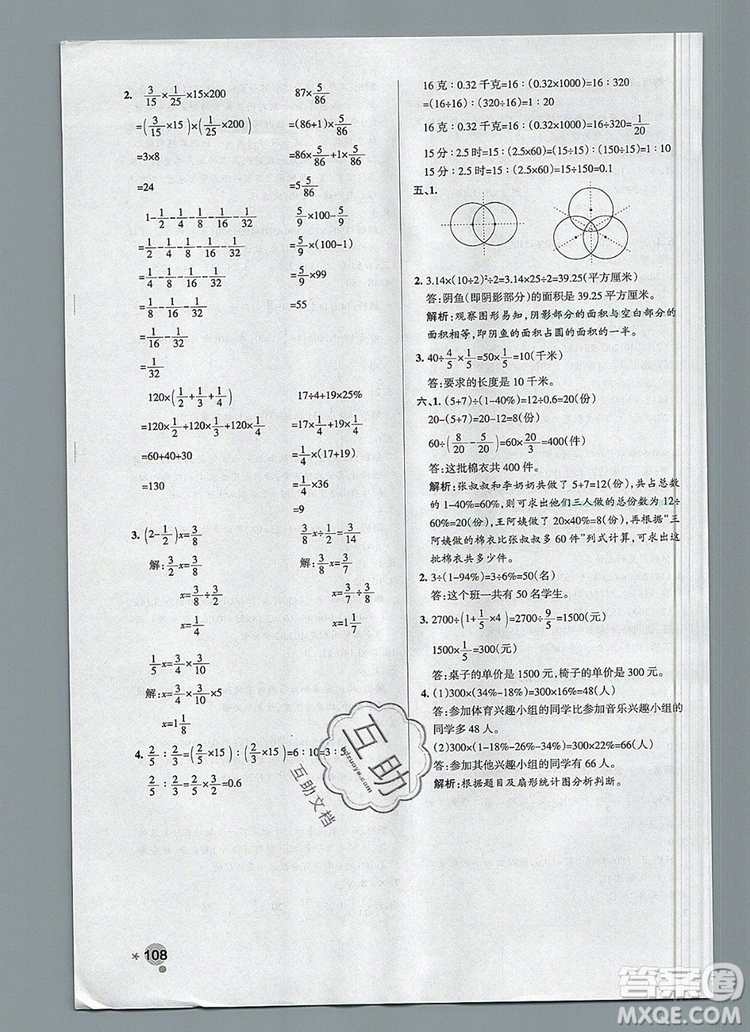 2. 3/15×1/25×15×200
=(3/15×15)×(1/25×200)
=3×8
=24
87×5/86
=(86+1)×5/86
=86×5/86+1×5/86
=5 5/86
1-1/2-1/4-1/8-1/16-1/32
=1/2-1/4-1/8-1/16-1/32
=1/4-1/8-1/16-1/32
=1/8-1/16-1/32
=1/16-1/32
=1/32
5/9×100-5/9
=5/9×(100-1)
=5/9×99
=55
120×(1/2+1/3+1/4)
=120×1/2+120×1/3+120×1/4
=60+40+30
=130
17÷4+19×25%
=17×1/4+19×1/4
=1/4×(17+19)
=1/4×36
=9
3. (2-1/2)x=3/8
解:3/2x=3/8
x=3/8÷3/2
x=1/4
3/8x÷1/7=3/8
解:3/8x=3/8×1/7
x=3/56÷3/8
x=1/7
1/5x=3/4×3/10
解:x=3/4×3/10×5
x=1 1/8
4. 2/5:2/3=(2/5×15):(2/3×15)=6:10=3:5
2/5:2/3=2/5÷2/3=0.6
16克:0.32千克=16:(0.32×1000)=16:320
=(16÷16):(320÷16)=1:20
16克:0.32千克=16÷(0.32×1000)=16÷320=1/20
15分:2.5时=15:(2.5×60)=(15÷15):(150÷15)=1:10
15分:2.5时=15÷(2.5×60)=15÷150=0.1
五、1.
2. 3.14×(10÷2)²÷2=3.14×25÷2=39.25(平方厘米)
答:阴鱼(即阴影部分)的面积是39.25平方厘米。
解析:观察图形易知,阴影部分的面积与空白部分的
面积相等,即阴鱼的面积占圆的面积的一半。
3. 40÷4/5×1/5=50×1/5=10(千米)
答:要求的长度是10千米。
六、1. (5+7)÷(1-40%)=12÷0.6=20(份)
20-(5+7)=20-12=8(份)
60÷(8/20-5/20)=60×20/3=400(件)
答:这批棉衣共400件。
解析:张叔叔和李奶奶共做了5+7=12(份),共占总份数的
1-40%=60%,则可求出他们三人做了的总份数为12÷
60%=20(份),王阿姨做了20×40%=8(份),再根据“王
阿姨做的棉衣比张叔叔多60件”列式计算,可求出这
批棉衣共多少件。
2. 3÷(1-94%)=3÷6%=50(名)
答:这个班一共有50名学生。
3. 2700÷(1+1/5×4)=2700÷9/5=1500(元)
1500×1/5=300(元)
答:桌子的单价是1500元,椅子的单价是300元。
4. (1)300×(34%-18%)=300×16%=48(人)
答:参加体育兴趣小组的同学比参加音乐兴趣小组的
同学多48人。
(2)300×(1-18%-26%-34%)=300×22%=66(人)
答:参加其他兴趣小组的同学有66人。
解析:根据题目及扇形统计图分析判断。
互助
互助文档
108
答案圈
MXQE.COM